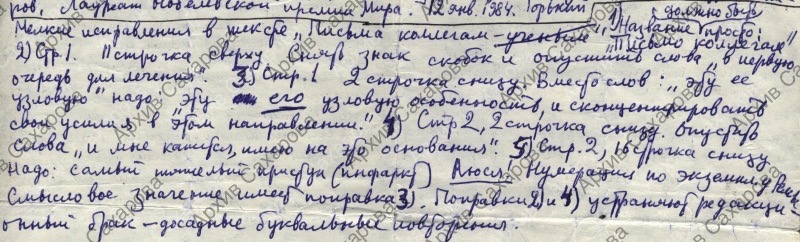 ров, Лауреат Нобелевской премии Мира. 12 янв. 1984. Горький
должно быть
Мелкие исправления в тексте „Письма коллегам-ученым" 1) Название просто:
„Письмо коллегам"
2) Стр. 1. 11 строчка сверху. Снять знак скобок и опустить слова „в первую
очередь для лечения" 3) Стр. 1 2 строчка снизу. Вместо слов: „эту ее
узловую" надо „эту его узловую особенность, и сконцентрировать
свои усилия в этом направлении." 4) Стр. 2, 2 строчка снизу. опустить
слова „и мне кажется, имею на это основания". 5) Стр. 2, 16 строчка снизу
надо: самый тяжелый приступ (инфаркт) Люся. Нумерация по экземпляру
Смысловое значение имеет поправка 3). Поправки 2) и 4) устраняют редакци-
онный брак – досадные буквальные повторения.
Архив Сахарова